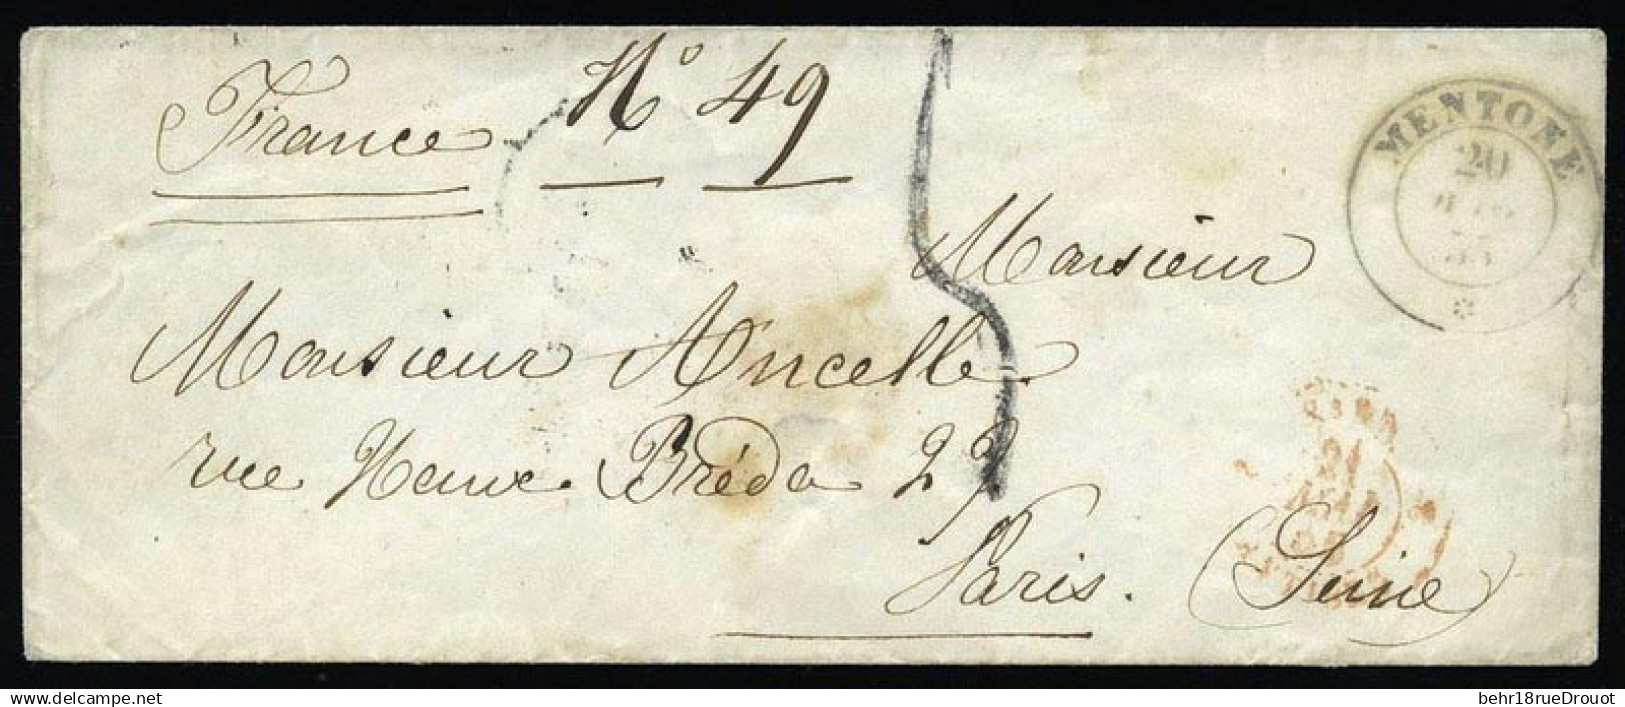 France N° 49
MENTONE
20
55
Monsieur
Monsieur Ancelle.
rue Neuve. Bréda 27
5
21
Paris. (Seine)
delcampe.net
behr18rueDrouot